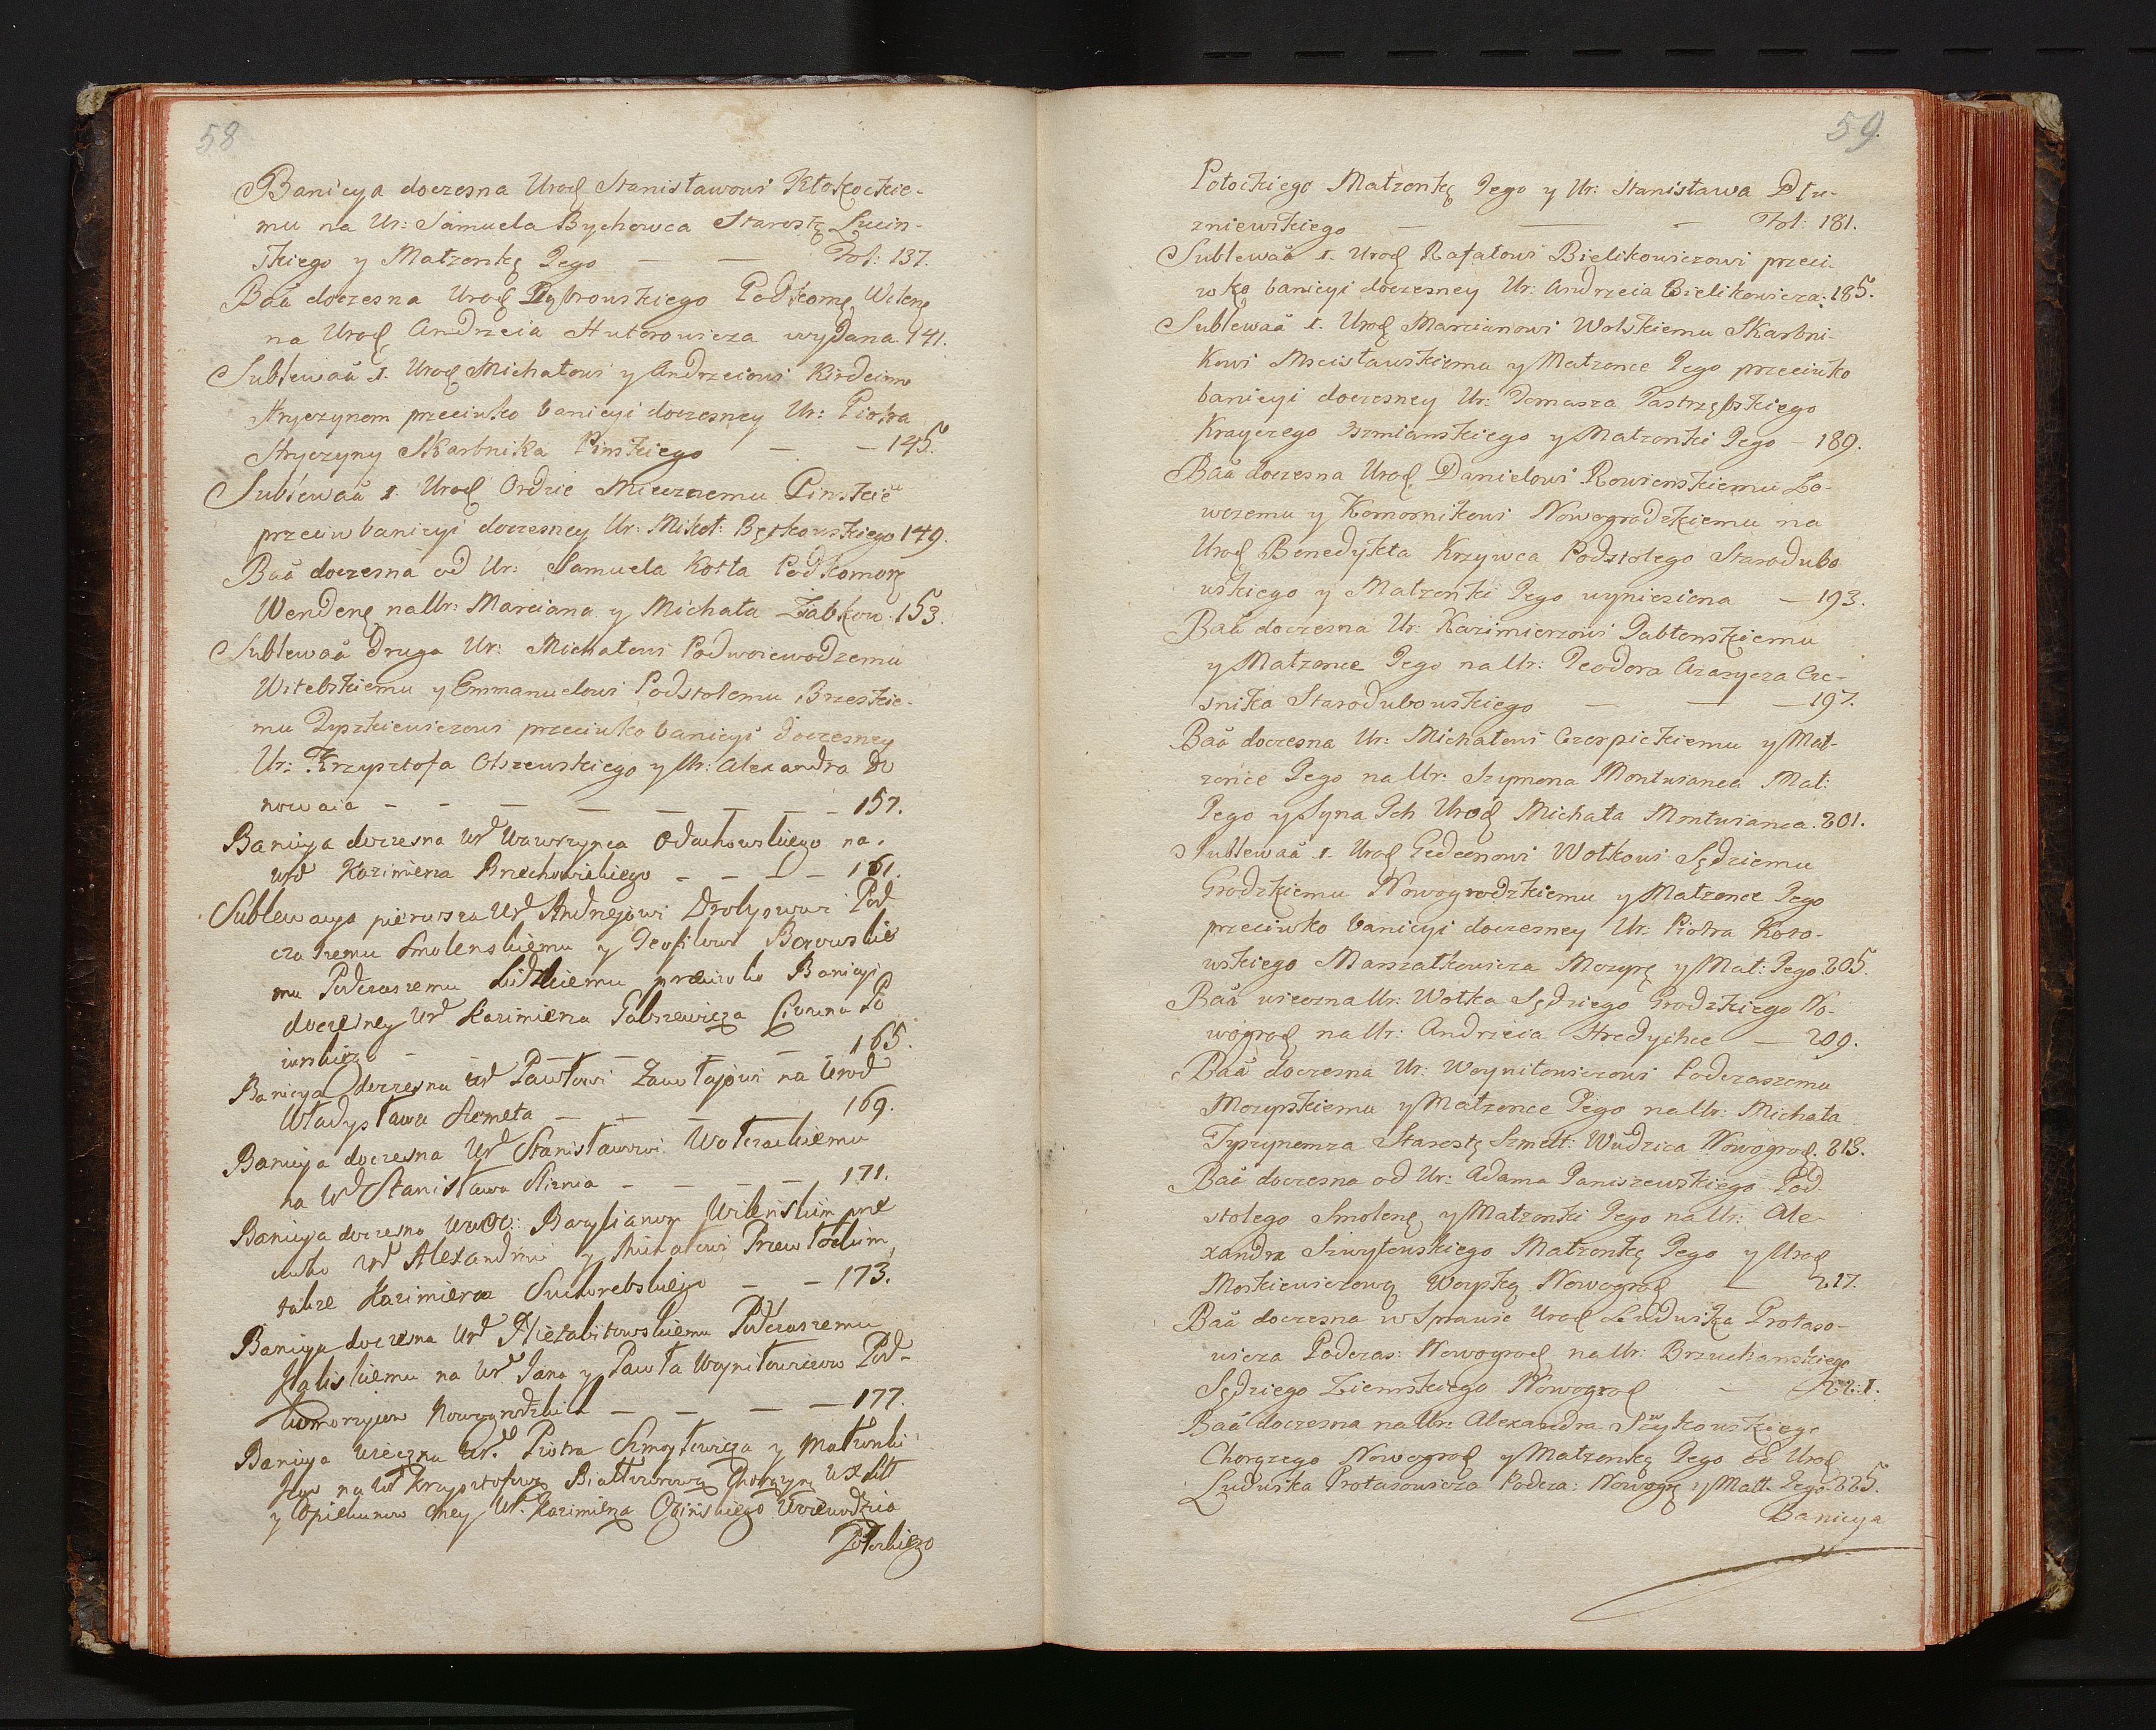 58
Banicya doczesna Urod Stanisławowi Kłokockie-
mu na Ur: Samuela Bychowca Starostę Lucin-
skiego y Małżonkę Jego — — Fol: 137.
Baa doczesna Urod Dąbrowskiego Podkomę Wilenę
na Urod Andrzeia Hutorowicza wydana 141.
Sublewaa 1. Urod Michałowi y Andrzeiowi Kirdeiom
Hryczynom przeciwko banicyi doczesney Ur: Piotra
Hryczyny Skarbnika Pinskiego — — 145.
Sublewaa 1. Urod Ordzie Miecznemu Pinskie
przeciw banicyi doczesney Ur: Mikoł: Bętkowskiego 149.
Baa doczesna od Ur: Samuela Kotła Podkomorę
Wendenę na Ur: Marciana y Michała Zabkow. 153.
Sublewaa druga Ur: Michałowi Podwoiewodzemu
Witebskiemu y Emmanuelowi Podstolemu Brzeskie-
mu Dyszkiewiczowi przeciwko banicyi doczesney
Ur: Krzysztofa Olszewskiego y Ur: Alexandra Do
nowaia — — — — — — — 157.
Banicya doczesna Urd Wawrzynca Odachowskiego na.
Urd Kazimierza Brzechowskiego — — — — 161.
Sublewacya pierwsza Urd Andrzejowi Drolyowi Pod
czaszemu Smolenskiemu y Teofilowi Borowskie
mu Podczaszemu Lidzkiemu przeciwko Banicyi
doczesney Urd Kazimierza Gabszewicza Ciwuna Po
iurskiego — — — — — 165.
Banicya doczesna Urd Pawłowi Zawłajowi na Urod
Władysława Szemeta — — — 169.
Banicya doczesna Urd Stanisławowi Wołczackiemu
na Urd Stanisława Sliznia — — — — 171.
Banicya doczesna Bazylianom Wilenskim prze
ciwko Urd Alexandrowi y Michałowi Przewłockim
także Kazimierza Suchorebskiego — — 173.
Banicya doczesna Urd Niezabitowskiemu Podczaszemu
Halickiemu na Ur Jana y Pawła Woyniłowiczow Pod-
komorzycow Nowogrodzkich — — — — 177.
Banicya wieczna Ur. Piotra Szmoyłowicza y Małżonki
Jego na Ur Krzysztofową Białłozorową Chorążynę WX Litt
y Opiekunow oney Ur. Kazimierza Oginskiego Woiewodzica
Połockiego
59.
Połockiego Małżonkę Jego y Ur: Stanisława Dłu-
zniewskiego — — — Fol: 181.
Sublewaa 1. Urod Rafałowi Bielikowiczowi przeci-
wko banicyi doczesney Ur: Andrzeia Bielikowicza. 185.
Sublewaa 1. Urod Marcianowi Wolskiemu Skarbni-
kowi Mscisławskiemu y Małżonce Jego przeciwko
banicyi doczesney Ur: Tomasza Jastrzębskiego
Krayczego Oszmianskiego y Małżonki Jego — 189.
Baa doczesna Urod Danielowi Rowienskiemu Ło-
wczemu y Komornikowi Nowogrodzkiemu na
Urod Benedykta Krzywca Podstolego Starodubo
wskiego y Małżonki Jego wyniesiona — 193.
Baa doczesna Ur: Kazimierzowi Jabłonskiemu
y Małżonce Jego na Ur: Teodora Azarycza Cze-
snika Starodubowskiego — — — 197.
Baa doczesna Ur: Michałowi Czerpickiemu y Mał-
żonce Jego na Ur: Szymona Montwianca Mał:
Jego y Syna Ich Urod Michała Montwianca. 201.
Sublewaa 1. Urod Gedeonowi Wołkowi Sędziemu
Grodzkiemu Nowogrodzkiemu y Małżonce Jego
przeciwko banicyi doczesney Ur: Piotra Koro-
wskiego Marszałkowicza Mozyrę y Mał: Jego. 205.
Baa wieczna Ur: Wołka Sędziego Grodzkiego No-
wogrod na Ur: Andrzeia Hredyihce — 209.
Baa doczesna Ur: Woyniłowiczowi Podczaszemu
Mozyrskiemu y Małżonce Jego na Ur: Michała
Tyzynemza Starostę Szmelt: Woiewodzica Nowogrod. 213.
Baa doczesna od Ur: Adama Janiszewskiego Pod-
stolego Smolenę y Małżonki Jego na Ur: Ale-
xandra Sawyłowskiego Małżonkę Jego y Urod
Morkiewiczową Woyską Nowogrod — 217.
Baa doczesna w Sprawie Urod Ludwika Protaso-
wicza Podczas: Nowogrod na Ur: Brzuchanskiego
Sędziego Ziemskiego Nowogrod — 221.
Baa doczesna na Ur: Alexandra Szykowskiego
Chorążego Nowogrod y Małżonkę Jego od Urod
Ludwika Protasowicza Podcza: Nowogrę y Małż. Jego. 225.
Banicya